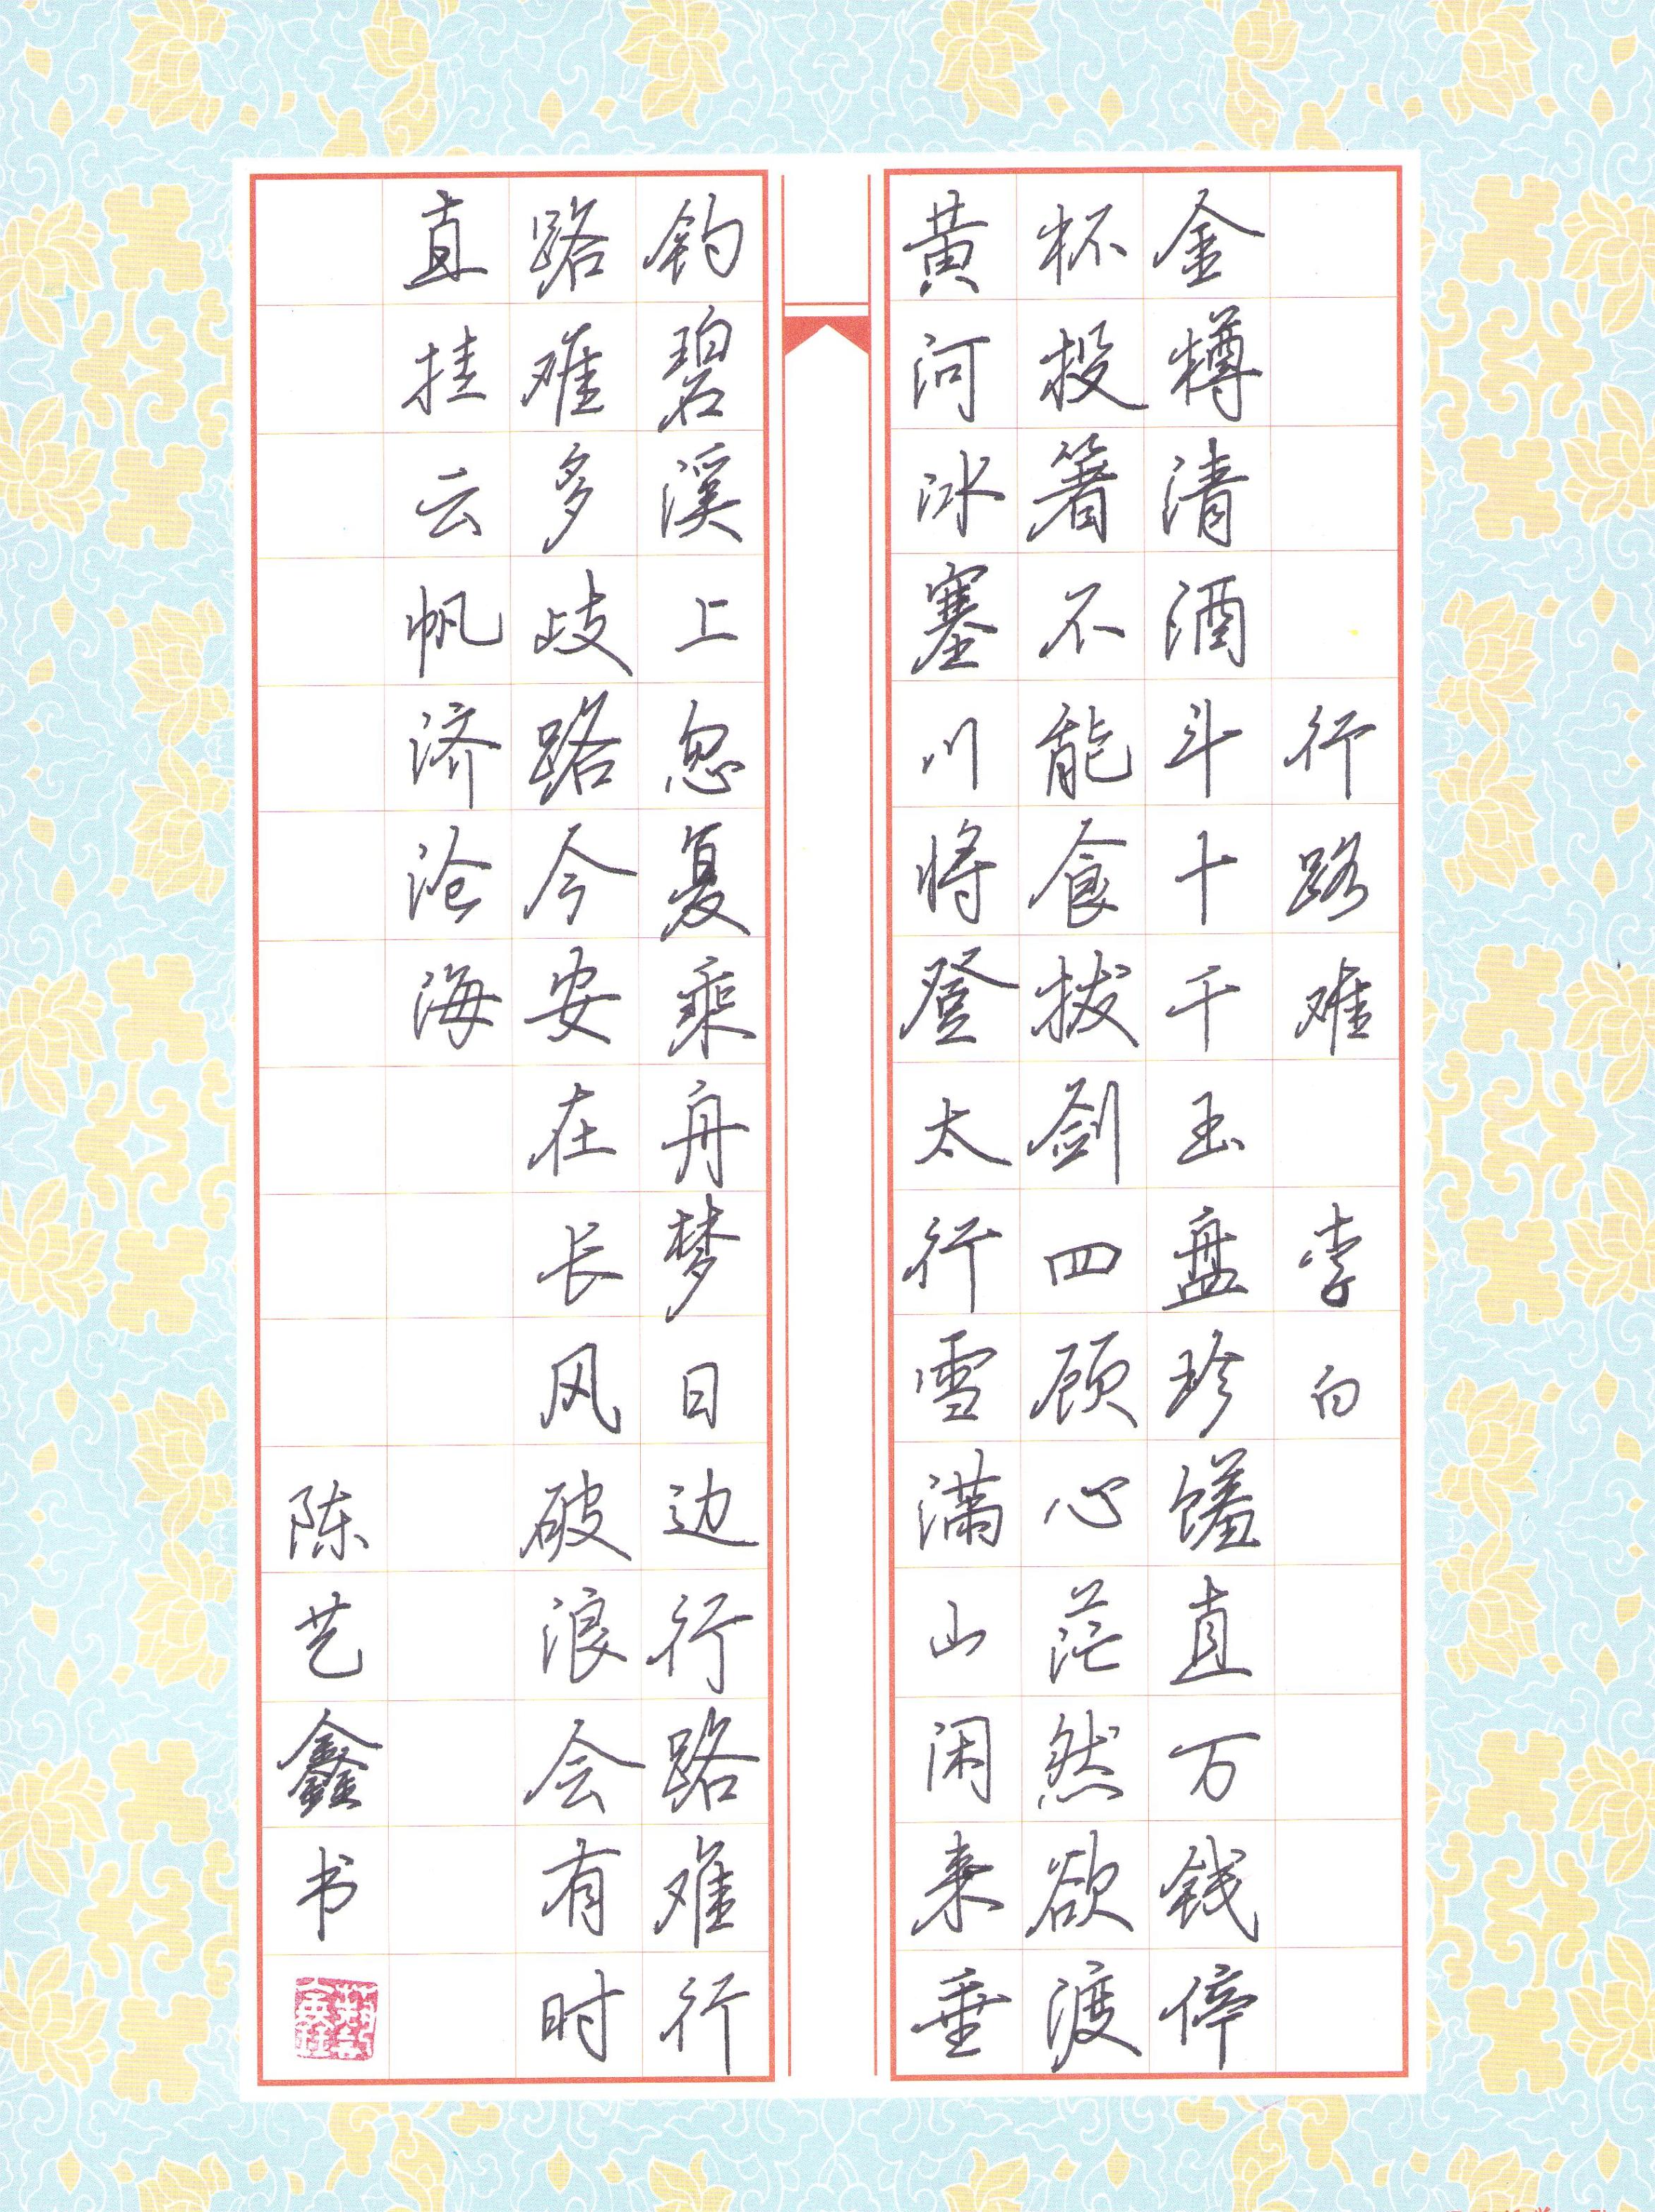 行路难 李白
金樽清酒斗十千玉盘珍馐直万钱停
杯投箸不能食拔剑四顾心茫然欲渡
黄河冰塞川将登太行雪满山闲来垂
钓碧溪上忽复乘舟梦日边行路难行
路难多歧路今安在长风破浪会有时
直挂云帆济沧海
陈艺鑫书